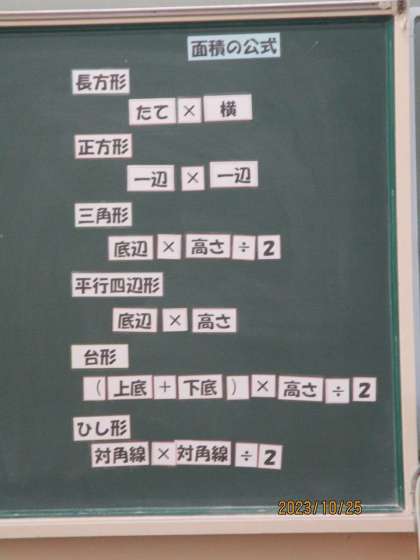 面積の公式
長方形
たて × 横
正方形
一辺 × 一辺
三角形
底辺 × 高さ ÷ 2
平行四辺形
底辺 × 高さ
台形
( 上底 + 下底 ) × 高さ ÷ 2
ひし形
対角線 × 対角線 ÷ 2
2023/10/25